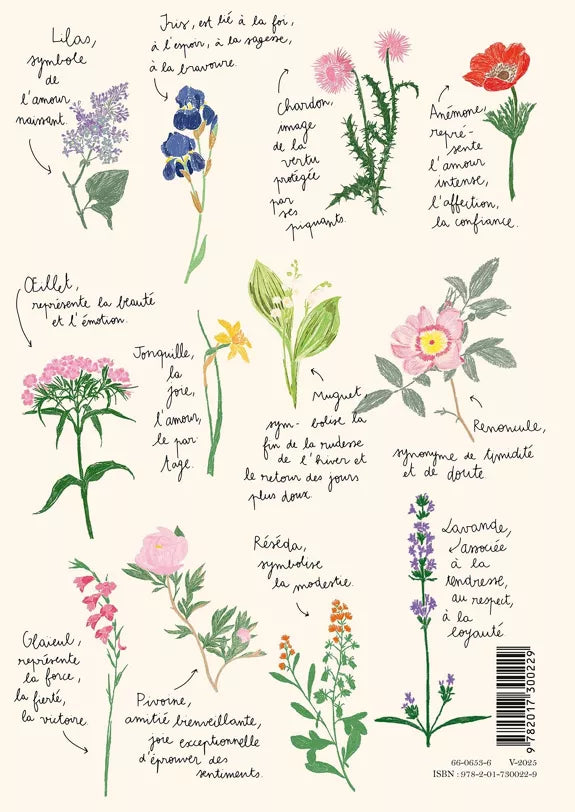 Lilas,
symbole
de
l'amour
naissant.
Iris, est lié à la foi,
à l'espoir, à la sagesse,
à la bravoure.
Chardon,
image
de la
vertu
protégée
par
ses
piquants.
Anémone,
repré-
sente
l'amour
intense,
l'affection,
la confiance.
Œillet,
représente la beauté
et l'émotion.
Jonquille,
la
joie,
l'amour,
le par-
tage.
Muguet,
sym- bolise la
fin de la rudesse
de l'hiver et
le retour des jours
plus doux.
Renoncule,
synonyme de timidité
et de doute.
Glaïeul,
représente
la force,
la fierté,
la victoire.
Pivoine,
amitié bienveillante,
joie exceptionnelle
d'éprouver des
sentiments.
Réséda,
symbolise
la modestie.
Lavande,
associée
à la
tendresse,
au respect,
à la
loyauté
9 782017 300229
66-0653-6 V-2025
ISBN : 978-2-01-730022-9